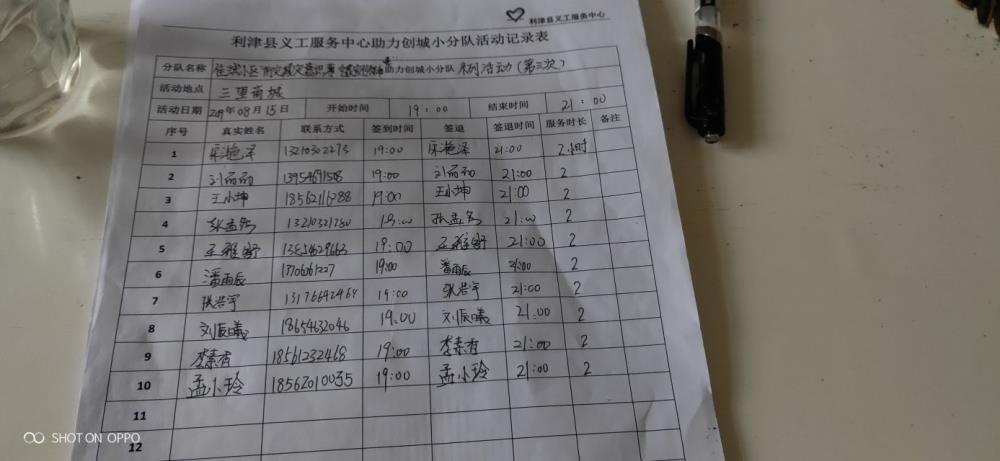 利津县义工服务中心
利津县义工服务中心助力创城小分队活动记录表
分队名称 助力创城小分队 系列活动(第三次)
活动地点 三里商城
活动日期 2019年08月15日 开始时间 19:00 结束时间 21:00
序号 真实姓名 联系方式 签到时间 签退 签退时间 服务时长 备注
1 13210302275 19:00 21:00 2小时
2 刘丽丽 19:00 刘丽丽 21:00 2
3 王小坤 19:00 王小坤 21:00 2
4 张孟 13210321780 19:00 张孟 21:00 2
5 王雅 19:00 王雅 21:00 2
6 潘雨辰 19:00 潘雨辰 21:00 2
7 张浩宇 13176642464 19:00 张浩宇 21:00 2
8 刘辰曦 18654632046 19:00 刘辰曦 21:00 2
9 李素香 18561232468 19:00 李素香 21:00 2
10 孟小玲 18562010035 19:00 孟小玲 21:00 2
11
12
SHOT ON OPPO